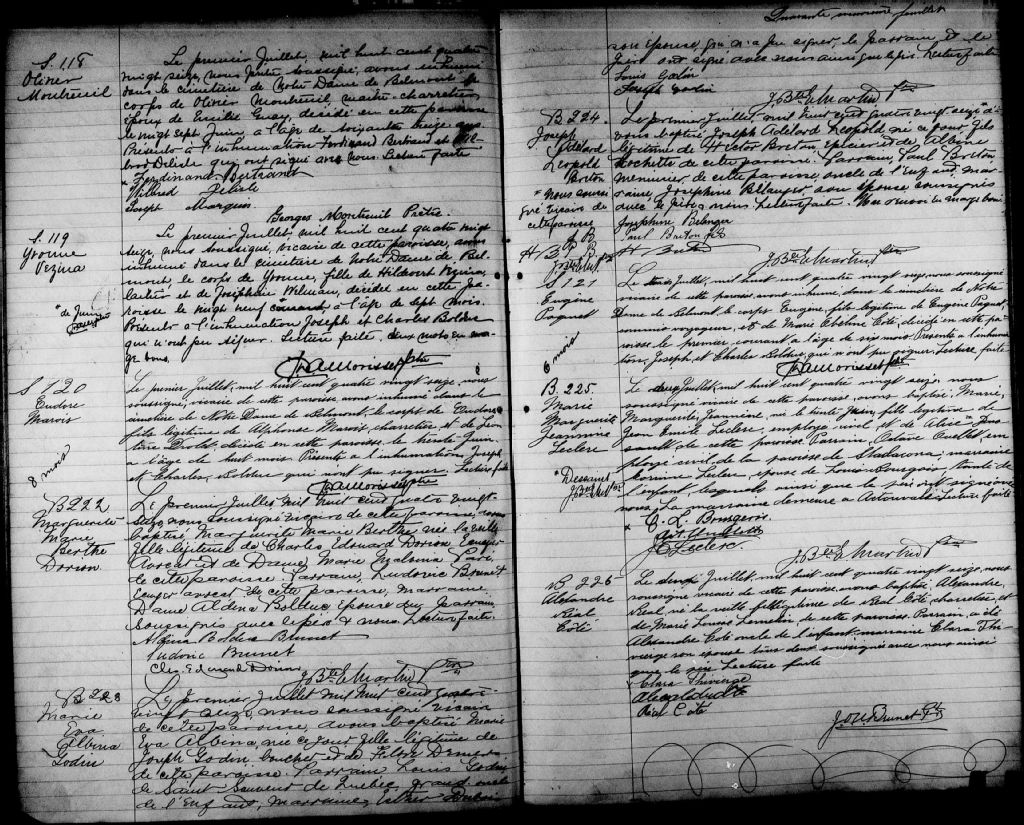 S. 118
Olivier
Montreuil
Le premier Juillet, mil huit cent quatre
vingt seize, nous Prêtre soussigné, avons inhumé
dans le cimetière de Notre Dame de Belmont le
corps de Olivier Montreuil, maître-charretier,
époux de Emilie Guay, décédé en cette paroisse
le vingt sept Juin, à l'âge de soixante treize ans
Présents à l'inhumation Ferdinand Bertrand et Wil-
brod Delisle qui ont signé avec nous. Lecture faite
Ferdinand Bertrand
Wilbrod Delisle
Joseph
Georges Montreuil Ptre.
S. 119
Yvonne
Vezina
Le premier Juillet, mil huit cent quatre vingt
seize, nous soussigné, vicaire de cette paroisse, avons
inhumé dans le cimetière de Notre Dame de Bel-
mont, le corps de Yvonne, fille de Vezina,
et de Joséphine, décédée en cette pa-
roisse le vingt neuf courant, à l'âge de sept mois.
Présents à l'inhumation Joseph et Charles Bolduc
qui n'ont pu signer. Lecture faite, deux mots en mar-
ge bons.
" de Juin
Morisset ptre
S 120
Eudore
Marois
8 mois
Le premier Juillet, mil huit cent quatre vingt seize, nous
soussigné, vicaire de cette paroisse, avons inhumé dans le
cimetière de Notre Dame de Belmont, le corps de Eudore
fils légitime de Alphonse Marois, charretier et de Léon-
tine Drolet, décédé en cette paroisse, le trente Juin
à l'âge de huit mois. Présents à l'inhumation, Joseph
et Charles Bolduc qui n'ont pu signer. Lecture faite
Morisset ptre
B222
Marguerite
Marie
Berthe
Dorion
Le premier Juillet, mil huit cent quatre vingt-
seize, nous soussigné vicaire de cette paroisse, avons
baptisé Marguerite Marie Berthe, née la veille
fille légitime de Charles Edouard Dorion, Ecuyer
Avocat et de Dame Marie Malvina Paré
de cette paroisse. Parrain, Ludovic Brunet
Ecuyer avocat de cette paroisse, marraine,
Dame Aldina Bolduc épouse du parrain,
soussignés avec le père & nous. Lecture faite.
Bolduc Brunet
Ludovic Brunet
Chs. Edouard Dorion
J. Bte E. Martin Ptre
B 223
Marie
Eva
Albina
Godin
Le premier Juillet mil huit cent quatre
vingt seize, nous soussigné vicaire
de cette paroisse, avons baptisé Marie
Eva Albina, née ce jour fille légitime de
Joseph Godin, boucher et de
de cette paroisse. Parrain, Louis Godin
de Saint Sauveur de Québec, grand oncle
de l'Enfant, Marraine, Esther
Quarante neuvième feuillet
son épouse, qui n'a pu signer, le parrain et le
père ont signé avec nous ainsi que le père. Lecture faite
Louis Godin
Joseph Godin
J. Bte E. Martin Ptre
B 224
Joseph
Adélard
Léopold
Breton
" nous soussi
gné vicaire de
cette paroisse
Le premier Juillet, mil huit cent quatre vingt-seize, a-
vons baptisé Joseph Adélard Léopold, né ce jour fils
légitime de Hector Breton, épicier et de Albine
Rochette de cette paroisse. Parrain, Paul Breton
menuisier, de cette paroisse, oncle de l'Enfant, mar-
raine, Joséphine Bélanger son épouse soussignés
avec le père & nous. Lecture faite. en marge bon
Joséphine Belanger
Paul Breton
H Breton
J. Bte E. Martin Ptre
S 121
Eugène
Paquet
6 mois
Le Juillet, mil huit cent quatre vingt seize, nous soussigné
vicaire de cette paroisse, avons inhumé, dans le cimetière de Notre
Dame de Belmont, le corps Eugène, fils légitime de Eugène Paquet,
commis voyageur, et de Marie Coté, décédé en cette pa-
roisse le premier courant à l'âge de six mois. Présents à l'inhuma-
tion, Joseph, et Charles Bolduc qui n'ont pu signer, Lecture faite
Morisset ptre
B. 225
Marie
Marguerite
Jeannine
Leclerc
Le deux Juillet, mil huit cent quatre vingt seize, nous
soussigné vicaire de cette paroisse, avons baptisé, Marie,
Marguerite, Jeannine, née le trente Juin, fille légitime de
Jean Emile Leclerc, employé civil et de Alice
de cette paroisse Parrain, Ouellet, em-
ployé civil de la paroisse de Stadacona; marraine
Leclerc, épouse de Louis Bourgeois, tante de
l'enfant, lesquels ainsi que le père ont signé avec
nous. La marraine demeure à Lecture faite
" Dessaint
J. Bte
G. L. Bourgeois
J E Leclerc.
J. Bte E. Martin Ptre
B 226
Alexandre
Réal
Coté
Le deux Juillet, mil huit cent quatre vingt seize, nous
soussigné vicaire de cette paroisse, avons baptisé, Alexandre,
Réal, né la veille fils légitime de Réal Coté, charretier, et
de Marie Louise Lemelin de cette paroisse. Parrain a été
Alexandre Coté oncle de l'enfant, marraine Clara Thi-
vierge son épouse tous deux soussignés avec nous ainsi
que le père Lecture faite
Clara Thivierge
Alex Coté
Réal Coté
Jos. U. Brunet Ptr